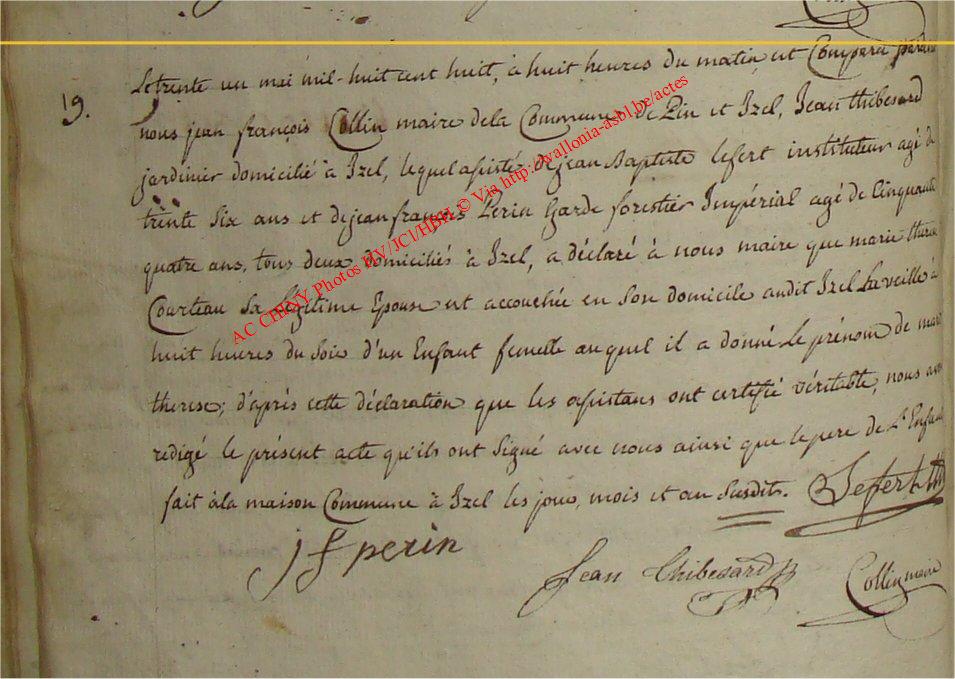 19.
Le trente un mai mil-huit cent huit, à huit heures du matin, est Comparu pardevant
nous jean françois Collin maire dela Commune de Pin et Izel, Jean thibesard
jardinier domicilié à Izel, lequel assisté de jean Baptiste lefert instituteur agé de
trente Six ans et de jean françois Perin Garde forestier Impérial agé de Cinquante
quatre ans, tous deux domiciliés à Izel, a déclaré à nous maire que marie therese
Courteau Sa légitime Epouse est accouchée en Son domicile audit Izel La veille à
huit heures du Soir d'un Enfant femelle auquel il a donné Le prénom de marie
therese; d'après cette déclaration que les assistans ont certifié véritable, nous avons
redigé le présent acte qu'ils ont Signé avec nous ainsi que le pere de L'Enfant
fait à la maison Commune à Izel les jour, mois et an Susdits. Lefert
jf perin
Jean thibesard
Collin maire
AC CHINY Photos HV/JCl/HBH © Via http://wallonia-asbl.be/actes